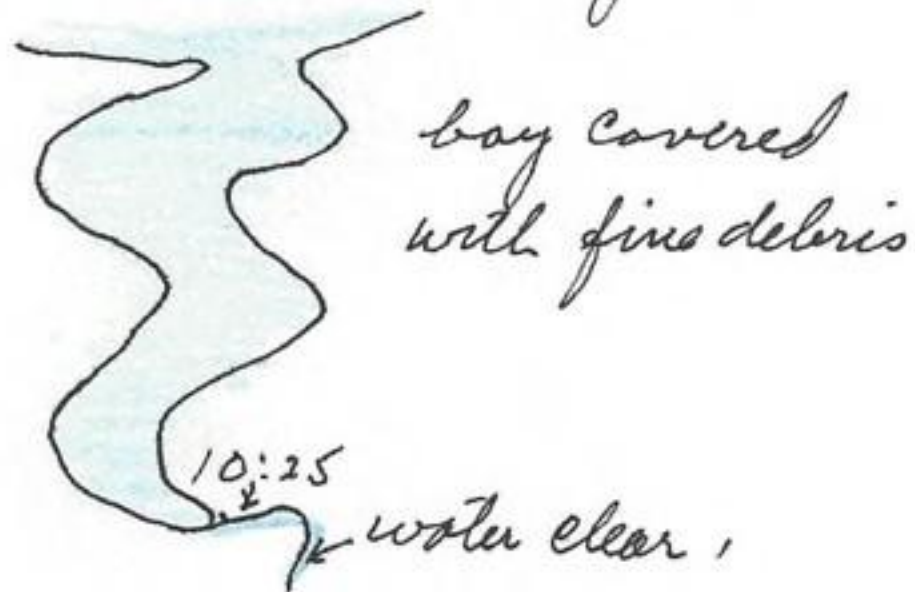 bay covered
with fine debris
10:25
water clear,